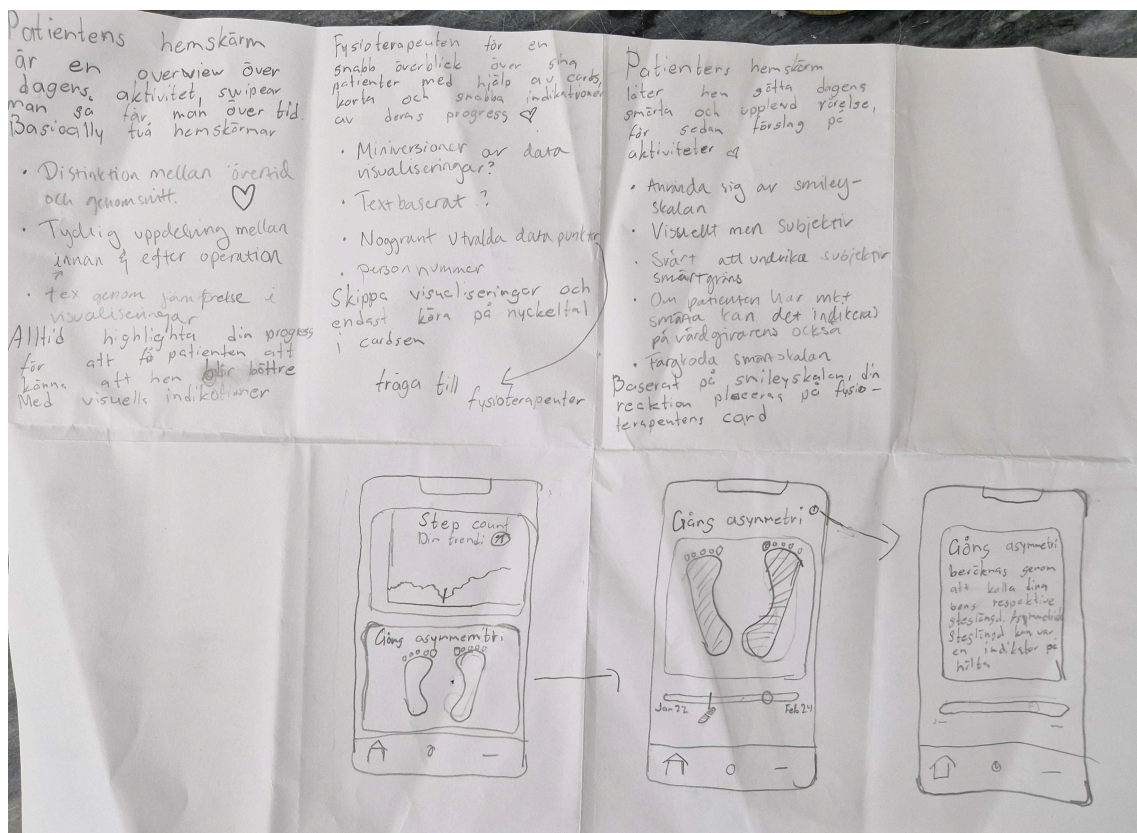 Patientens hemskärm
är en overwiew över
dagens aktivitet, swipear
man så får man över tid.
Basically två hemskärmar
• Distinktion mellan övertid
och genomsnitt.
• Tydlig uppdelning mellan
innan & efter operation
• tex genom jämförelse i
visualiseringar
Alltid highlighta din progress
för att få patienten att
känna att hen blir bättre
Med visuella indikationer
Fysioterapeuten får en
snabb överblick över sina
patienter med hjälp av cards,
korta och snabba indikationer
av deras progress
• Miniversioner av data
visualiseringar?
• Textbaserat ?
• Noggrant utvalda datapunkter
• personnummer
Skippa visualiseringar och
endast köra på nyckeltal
i cardsen
fråga till
fysioterapeuter
Patientens hemskärm
låter hen
smärta och upplevd rörelse,
får sedan förslag på
aktiviteter
• Använda sig av smiley-
skalan
• Visuellt men subjektiv
• Svårt att undvika subjektiv
smärtgräns
• Om patienten har mkt
smärta kan det indikeras
på vårdgivarens också
• Färgkoda smärtskalan
Baserat på smileyskalan, din
reaktion placeras på fysio-
terapeutens card
Step count
Din trend:
Gång asymmemtri
Gång asymmetri
Jan 22
Feb 24
Gång asymmetri
beräknas genom
att kolla dina
bens respektive
steglängd. Asymmetrisk
steglängd kan var
en indikator på
hälta